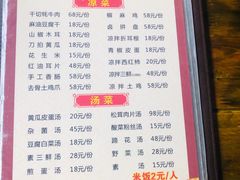 凉菜
干切牦牛肉 68元/份
麻油豆腐干 18元/份
山椒木耳 18元/份
刀拍黄瓜 18元/份
花生米 15元/份
红油耳片 48元/份
手工香肠 58元/份
去骨土鸡爪
椒麻鸡 58元/份
卤拼盘 58元/份
凉拌折耳根 18元/份
青椒皮蛋 18元/份
凉拌西红柿 20元/份
凉拌三鲜 48元/份
凉拌土鸡 58元/份
汤菜
黄瓜皮蛋汤 20元/份
杂菌汤 45元/份
豆腐白菜汤 18元/份
素三鲜汤 28元/份
煎蛋汤 18元/份
松茸肉片汤 98元/份
酸菜粉丝汤 15元/份
蹄花汤 48元/份
野菜汤 28元/份
素汤 15元/份
米饭2元/人